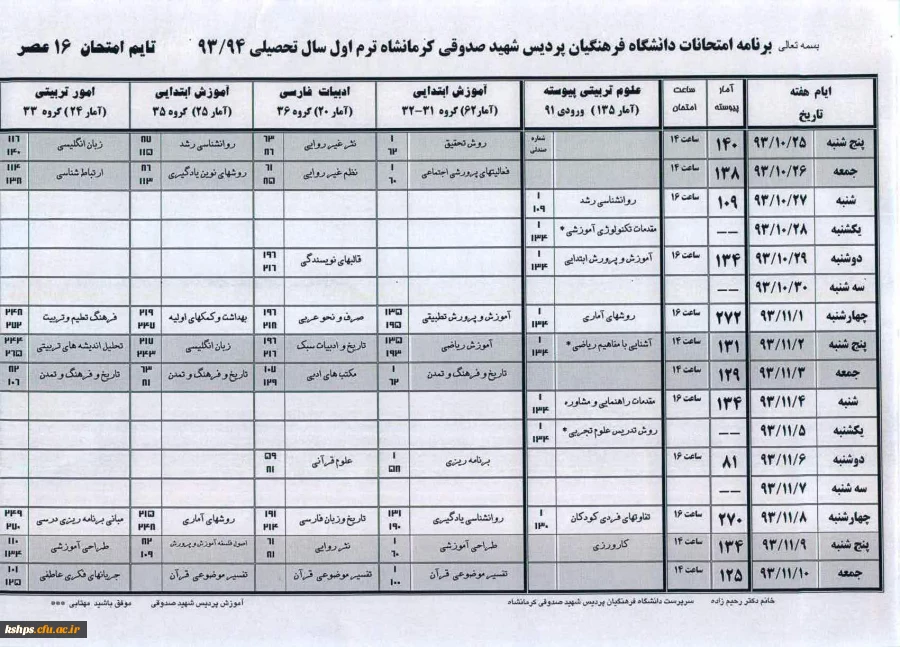 بسمه تعالی برنامه امتحانات دانشگاه فرهنگیان پردیس شهید صدوقی کرمانشاه ترم اول سال تحصیلی ۹۳/۹۴ تایم امتحان ۱۶ عصر
ایام هفته تاریخ | آمار پیوسته | ساعت امتحان | علوم تربیتی پیوسته (آمار ۱۳۵) ورودی ۹۱ | آموزش ابتدایی (آمار۶۲) گروه ۳۱-۳۲ | ادبیات فارسی (آمار۲۰) گروه ۳۶ | آموزش ابتدایی (آمار ۲۵) گروه ۳۵ | امور تربیتی (آمار ۲۴) گروه ۳۳
پنج شنبه ۹۳/۱۰/۲۵ ۱۴۰ ساعت ۱۴ شماره صندلی روش تحقیق ۱ ۶۲ نثر غیر روایی ۶۳ ۸۶ روانشناسی رشد ۸۷ ۱۱۵ زبان انگلیسی ۱۱۶ ۱۴۰
جمعه ۹۳/۱۰/۲۶ ۱۳۸ ساعت ۱۴ فعالیتهای پرورشی اجتماعی ۱ ۶۰ نظم غیر روایی ۶۱ ۸۵ روشهای نوین یادگیری ۸۶ ۱۱۳ ارتباط شناسی ۱۱۴ ۱۳۸
شنبه ۹۳/۱۰/۲۷ ۱۰۹ ساعت ۱۶ روانشناسی رشد ۱ ۱۰۹
یکشنبه ۹۳/۱۰/۲۸ -- مقدمات تکنولوژی آموزشی* ۱ ۱۳۴
دوشنبه ۹۳/۱۰/۲۹ ۱۳۴ ساعت ۱۶ آموزش و پرورش ابتدایی ۱ ۱۳۴ قالبهای نویسندگی ۱۹۶ ۲۱۶
سه شنبه ۹۳/۱۰/۳۰ --
چهارشنبه ۹۳/۱۱/۱ ۲۷۲ ساعت ۱۶ روشهای آماری ۱ ۱۳۴ آموزش و پرورش تطبیقی ۱۳۵ ۱۹۵ صرف و نحو عربی ۱۹۶ ۲۱۸ بهداشت و کمکهای اولیه ۲۱۹ ۲۴۷ فرهنگ تعلیم وتربیت ۲۴۸ ۲۷۲
پنج شنبه ۹۳/۱۱/۲ ۱۳۱ ساعت ۱۴ آشنایی با مفاهیم ریاضی* ۱ ۱۳۴ آموزش ریاضی ۱۳۵ ۱۹۳ تاریخ و ادبیات سبک ۱۹۶ ۲۱۶ زبان انگلیسی ۲۱۷ ۲۴۳ تحلیل اندیشه های تربیتی ۲۴۴ ۲۶۵
جمعه ۹۳/۱۱/۳ ۱۲۹ ساعت ۱۴ تاریخ و فرهنگ و تمدن ۱ ۶۲ مکتبهای ادبی ۱۰۷ ۱۲۹ تاریخ و فرهنگ و تمدن ۶۳ ۸۱ تاریخ و فرهنگ و تمدن ۸۲ ۱۰۶
شنبه ۹۳/۱۱/۴ ۱۳۴ ساعت ۱۶ مقدمات راهنمایی و مشاوره ۱ ۱۳۴
یکشنبه ۹۳/۱۱/۵ -- روش تدریس علوم تجربی* ۱ ۱۳۴
دوشنبه ۹۳/۱۱/۶ ۸۱ ساعت ۱۶ برنامه ریزی ۱ ۵۸ علوم قرآنی ۵۹ ۸۱
سه شنبه ۹۳/۱۱/۷ --
چهارشنبه ۹۳/۱۱/۸ ۲۷۰ ساعت ۱۶ تفاوتهای فردی کودکان ۱ ۱۳۰ روانشناسی یادگیری ۱۳۱ ۱۹۰ تاریخ وزبان فارسی ۱۹۱ ۲۱۴ روشهای آماری ۲۱۵ ۲۴۸ مبانی برنامه ریزی درسی ۲۴۹ ۲۷۰
پنج شنبه ۹۳/۱۱/۹ ۱۳۴ ساعت ۱۴ کارورزی طراحی آموزشی ۱ ۶۰ نثر روایی ۶۱ ۸۱ اصول فلسفه آموزش و پرورش ۸۲ ۱۰۹ طراحی آموزشی ۱۱۰ ۱۳۴
جمعه ۹۳/۱۱/۱۰ ۱۲۵ ساعت ۱۴ تفسیر موضوعی قرآن ۱ ۱۰۰ تفسیر موضوعی قرآن تفسیر موضوعی قرآن جریانهای فکری عاطفی ۱۰۱ ۱۲۵
خانم دکتر رحیم زاده سرپرست دانشگاه فرهنگیان پردیس شهید صدوقی کرمانشاه آموزش پردیس شهید صدوقی موفق باشید مهتابی ***
kshps.cfu.ac.ir